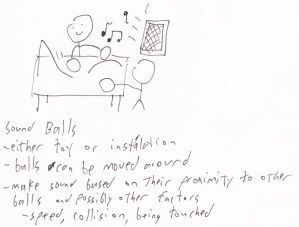 Sound Balls
-either toy or instalation
-balls can be moved around
-make sound based on their proximity to other
balls and possibly other factors
-speed, collision, being touched